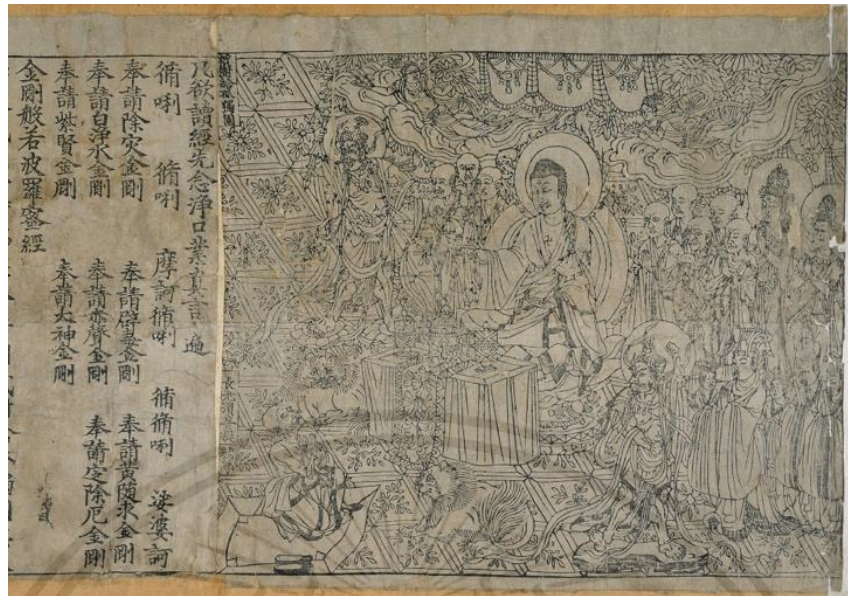 祇樹給孤獨園
長老須菩提
凡欲讀經先念淨口業真言遍
脩唎 脩唎 摩訶脩唎 脩脩唎 娑婆訶
奉請除灾金剛 奉請辟毒金剛 奉請黃隨求金剛
奉請白淨水金剛 奉請赤聲金剛 奉請定除厄金剛
奉請紫賢金剛 奉請大神金剛
金剛般若波羅蜜經